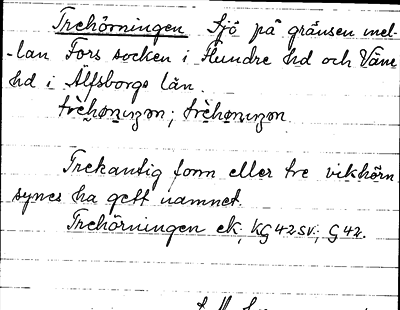 Trehörningen Sjö på gränsen mel-
-lan Fors socken i Flundre hd och Väne
hd i Älfsborgs län.
trèhønıŋən; trèhønıŋən.
Trekantig form eller tre vikhörn
synes ha gett namnet.
Trehörningen ek, KG 42 SV; G 42.